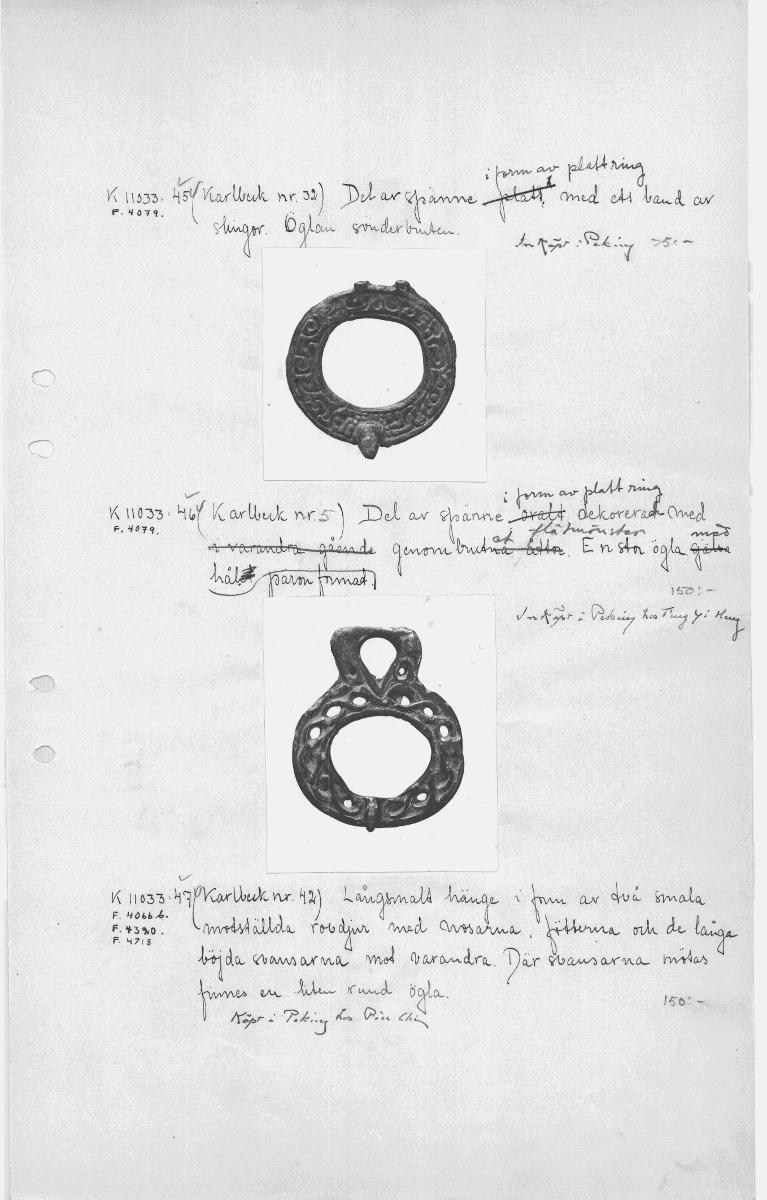 i form av plattring
K 11033: 45 (Karlbeck nr. 32) Del av spänne platt, med ett band av
F. 4079.
slingor. Öglan sönderbruten.
Inköpt i Peking 75:-
i form av plattring
K 11033: 46 (Karlbeck nr 5) Del av spänne ovalt dekorerad med
F. 4079.
et flätmönster med
i varandra gående genombrutna åttor. En stor ögla
hål päronformat.
150:-
Inköpt i Peking hos Ting Yi Hung
K 11033: 47 (Karlbeck nr. 42) Långsmalt hänge i form av två smala
F. 4066 b.
motställda rovdjur med nosarna, fötterna och de långa
F. 4390.
F. 4718
böjda svansarna mot varandra. Där svansarna mötas
finnes en liten rund ögla.
150:-
Köpt i Peking hos Pin Chi